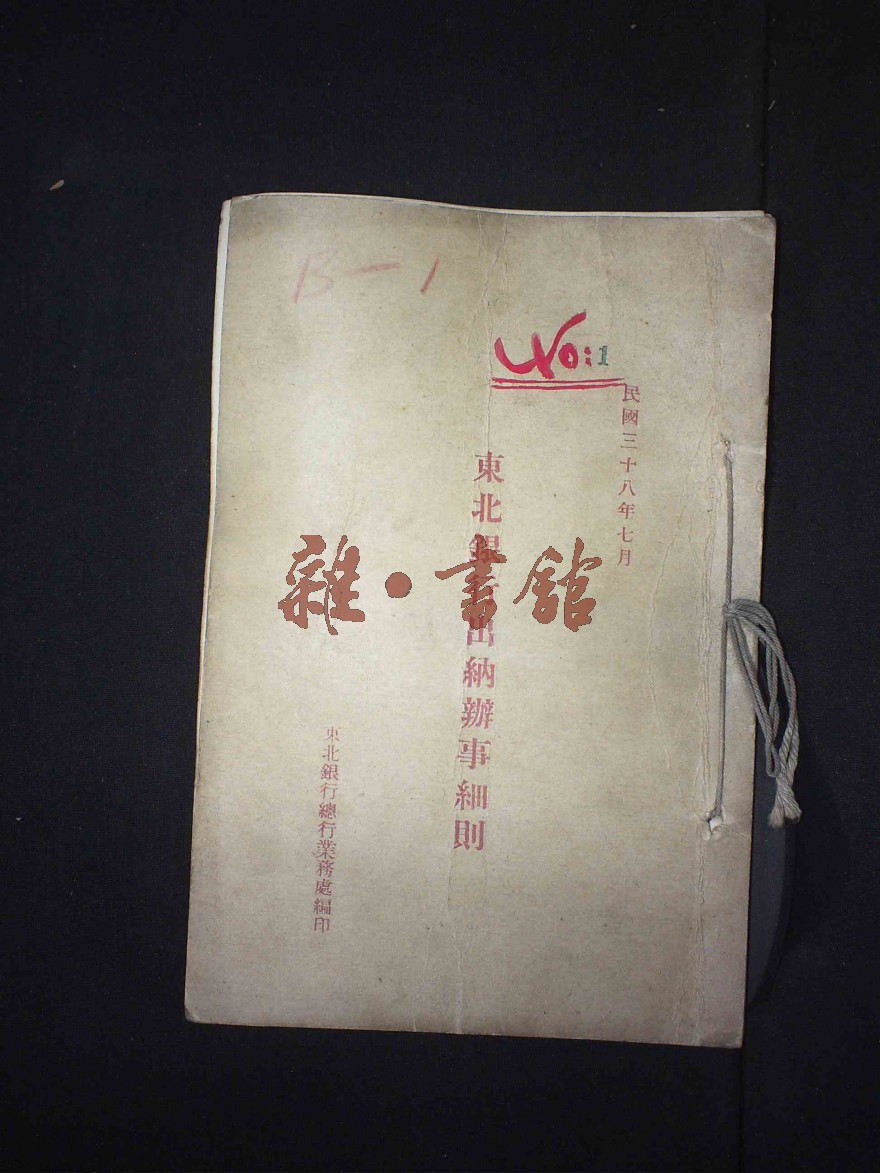 B-1
No:1
民國三十八年七月
東北銀行出納辦事細則
東北銀行總行業務處編印
雜·書館